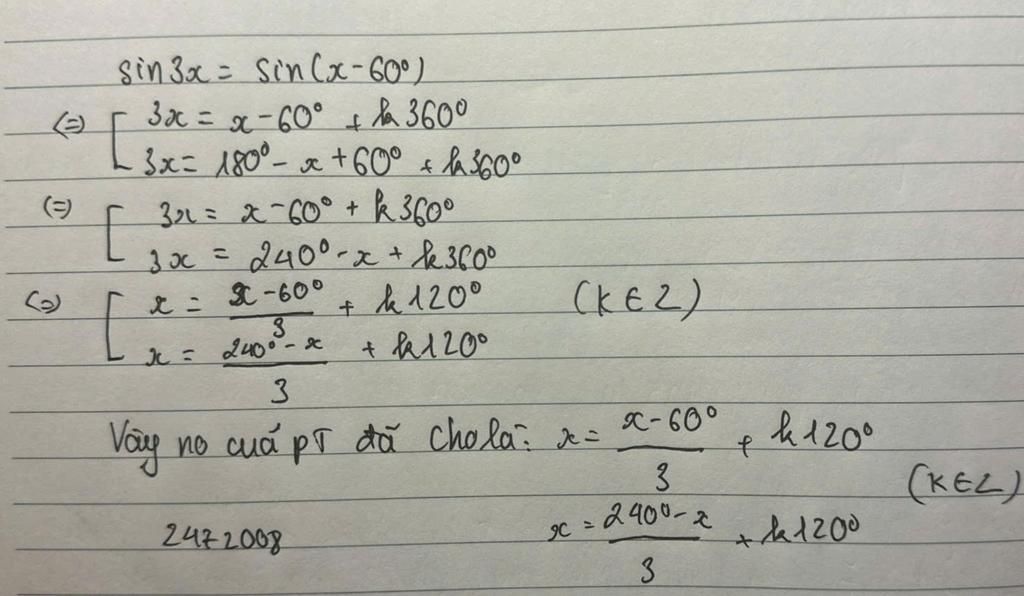 sin3x = sin(x-60°)
(=) [ 3x = x-60° + k360°
3x = 180° - x + 60° + k360°
(=) [ 3x = x-60° + k360°
3x = 240° - x + k360°
(=) [ x = (x-60°)/3 + k120° (K∈Z)
x = (240° - x)/3 + k120°
Vậy no cuả pT đã cho là: x = (x-60°)/3 + k120°
(K∈Z)
2472008 x = (240° - x)/3 + k120°